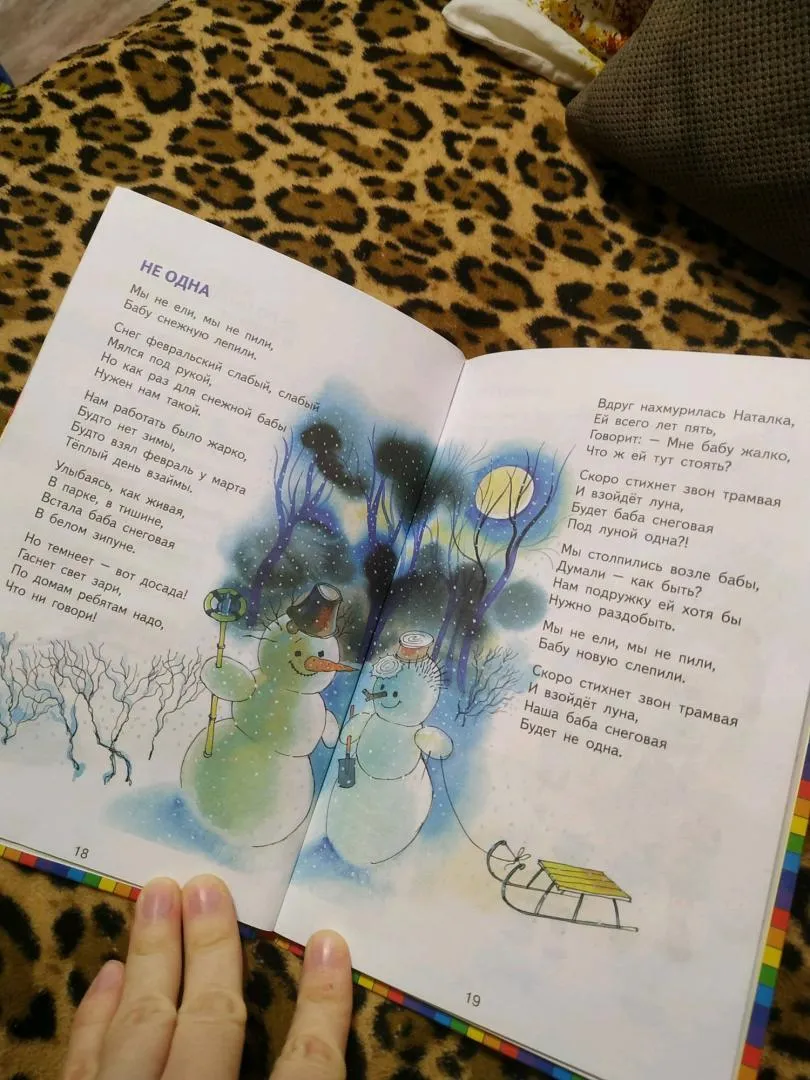 НЕ ОДНА
Мы не ели, мы не пили,
Бабу снежную лепили.
Снег февральский слабый, слабый
Мялся под рукой,
Но как раз для снежной бабы
Нужен нам такой.
Нам работать было жарко,
Будто нет зимы,
Будто взял февраль у марта
Тёплый день взаймы.
Улыбаясь, как живая,
В парке, в тишине,
Встала баба снеговая
В белом зипуне.
Но темнеет — вот досада!
Гаснет свет зари,
По домам ребятам надо,
Что ни говори!
18
Вдруг нахмурилась Наталка,
Ей всего лет пять,
Говорит: — Мне бабу жалко,
Что ж ей тут стоять?
Скоро стихнет звон трамвая
И взойдёт луна,
Будет баба снеговая
Под луной одна?!
Мы столпились возле бабы,
Думали — как быть?
Нам подружку ей хотя бы
Нужно раздобыть.
Мы не ели, мы не пили,
Бабу новую слепили.
Скоро стихнет звон трамвая
И взойдёт луна,
Наша баба снеговая
Будет не одна.
19